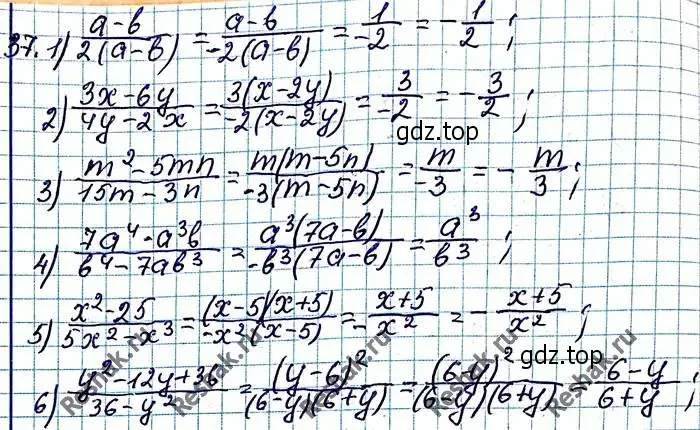 37. 1) (a-b)/(2(a-b)) = (a-b)/(-2(a-b)) = 1/(-2) = -1/2;
2) (3x-6y)/(4y-2x) = (3(x-2y))/(-2(x-2y)) = 3/(-2) = -3/2;
gdz.top
3) (m²-5mn)/(15m-3n) = (m(m-5n))/(-3(m-5n)) = m/(-3) = -m/3;
4) (7a⁴-a³b)/(b⁴-7ab³) = (a³(7a-b))/(-b³(7a-b)) = a³/b³;
5) (x²-25)/(5x²-x³) = ((x-5)(x+5))/(-x²(x-5)) = -(x+5)/x² = -(x+5)/x²;
gdz.top
6) (y²-12y+36)/(36-y²) = (y-6)²/((6-y)(6+y)) = (6-y)²/((6-y)(6+y)) = (6-y)/(6+y);
Reshak.ru
Reshak.ru
Reshak.ru